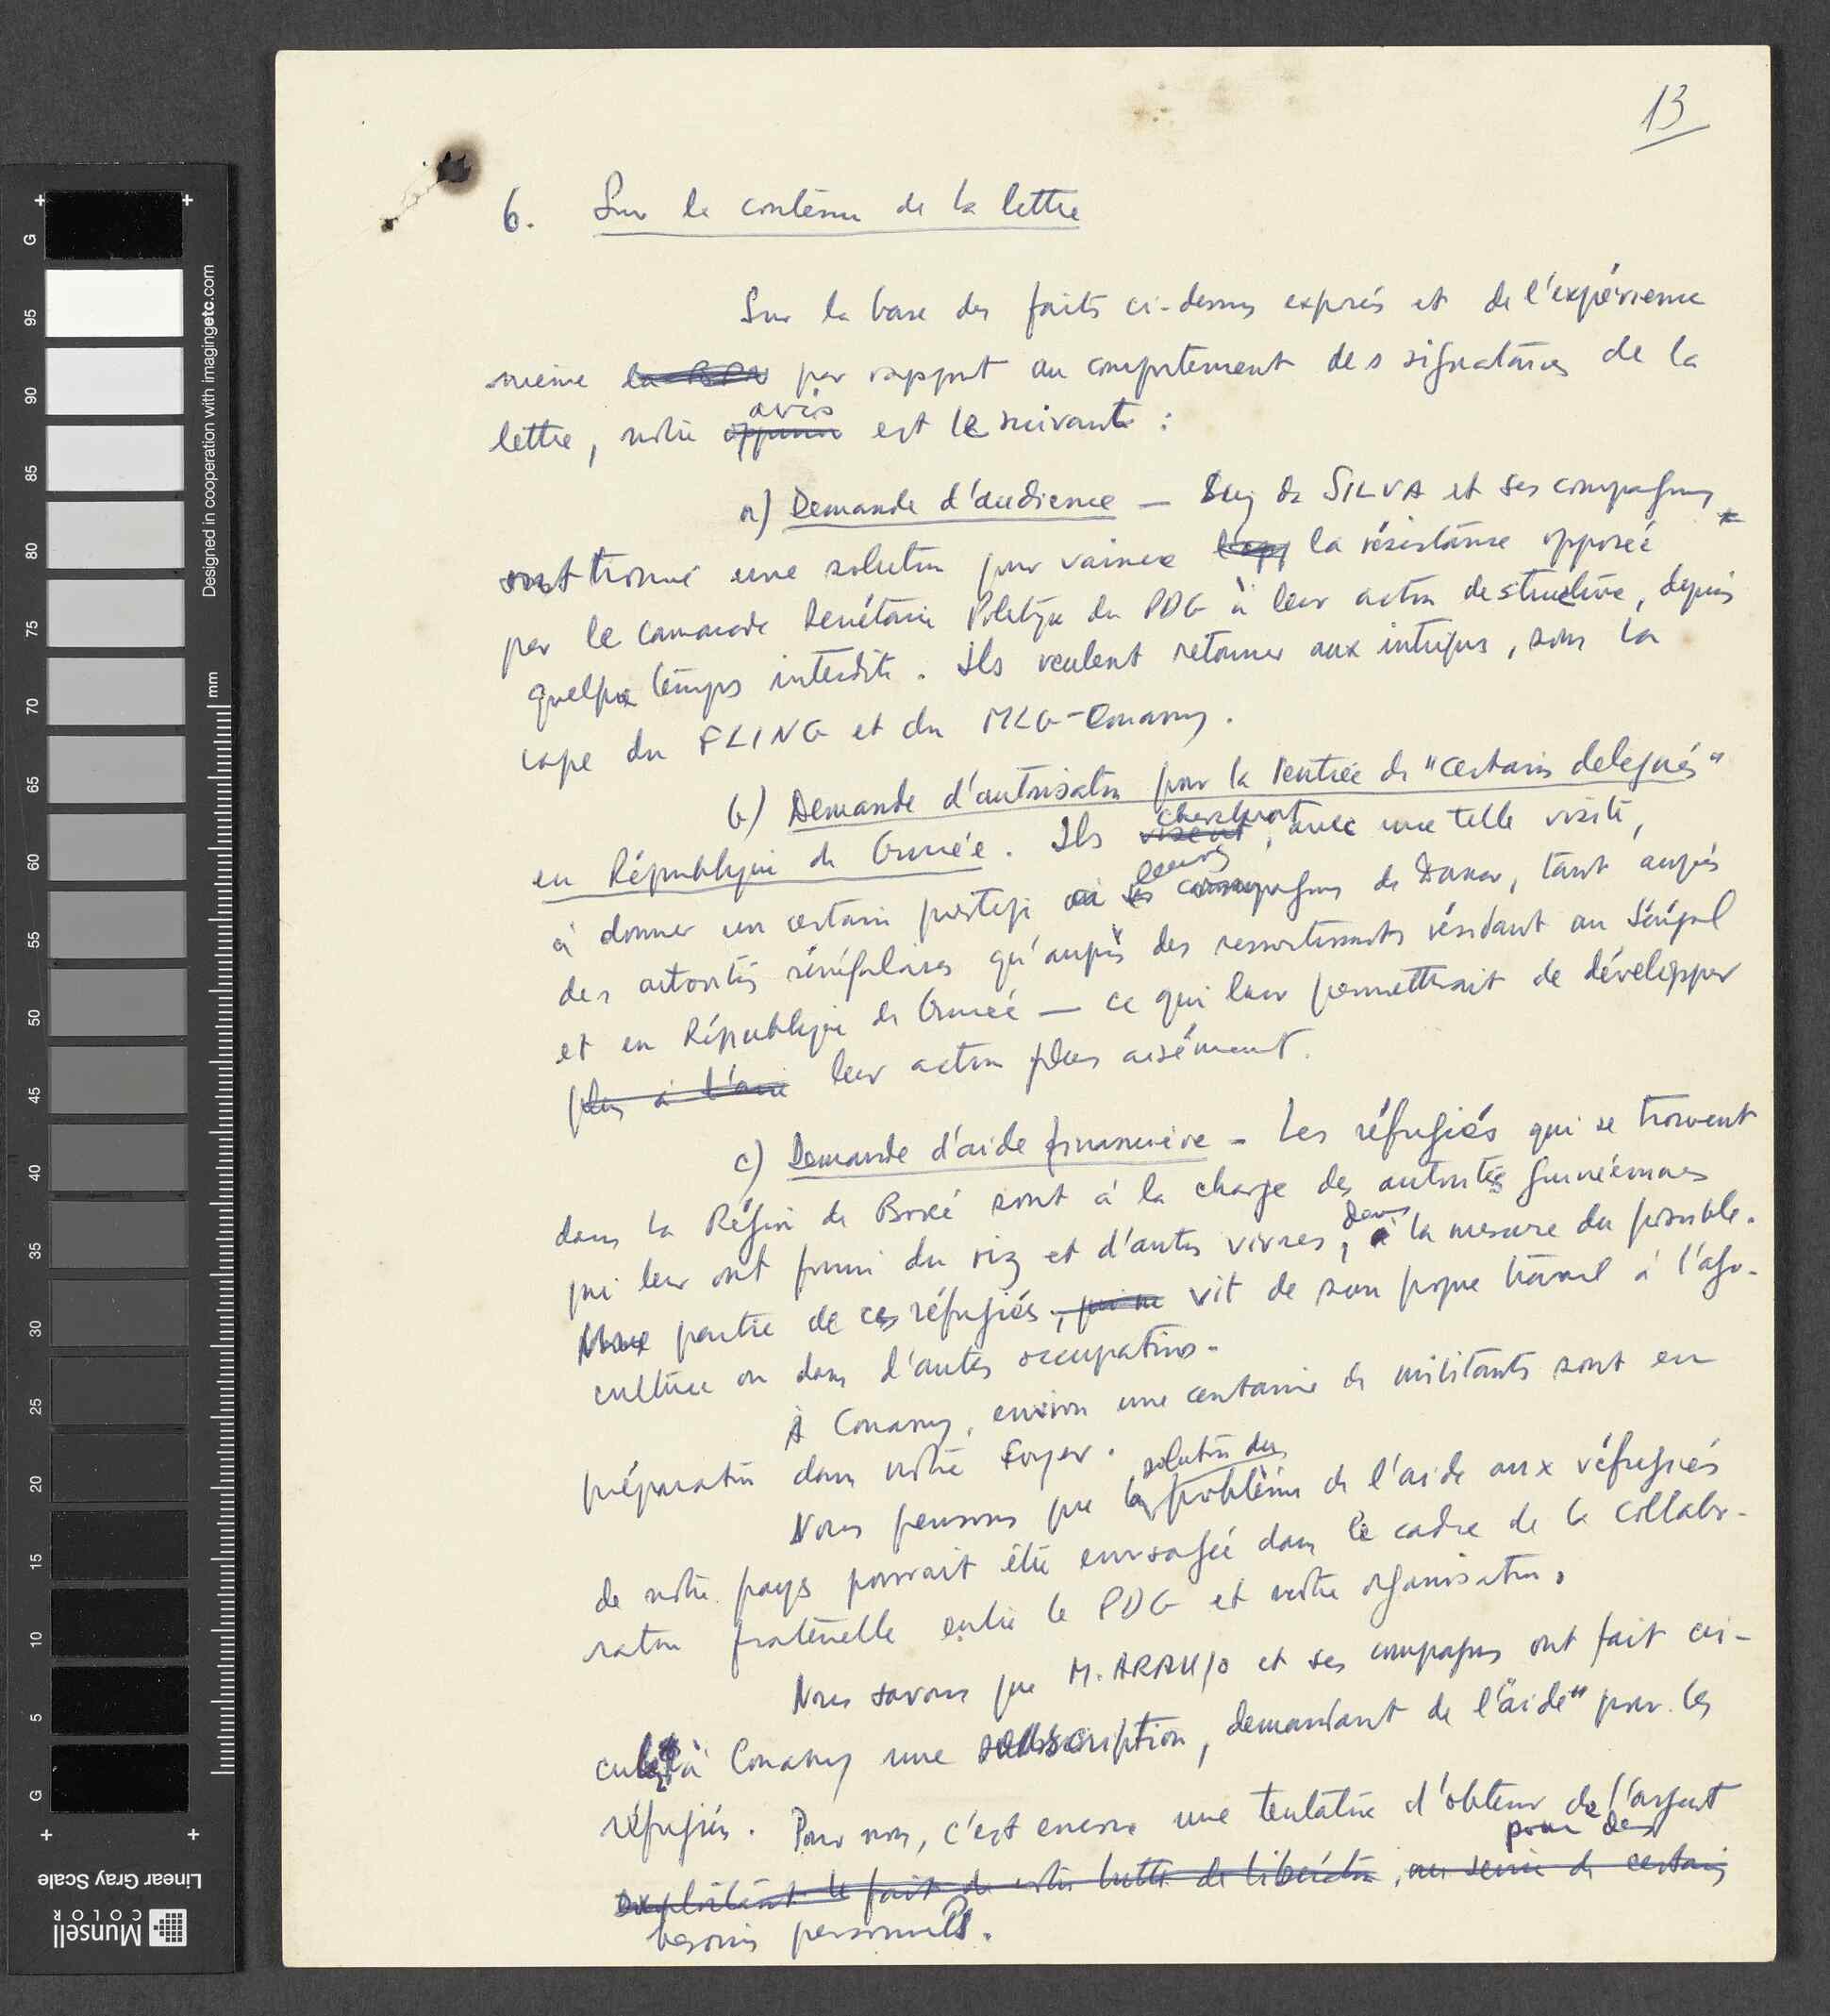 13
6. Sur le contenu de la lettre
Sur la base des faits ci-dessus exposés et de l'expérience
même par rapport au comportement des signataires de la
lettre, notre avis est le suivant :
a) Demande d'audience — da SILVA et ses compagnons
ont trouvé une solution pour vaincre la résistance opposée
par le camarade Secrétaire Politique du PDG à leur action destructive, depuis
quelque temps interdite. Ils veulent retourner aux intrigues, sous la
cape du FLING et du MLG-Conakry.
b) Demande d'autorisation pour la rentrée de "certains delegués"
en République de Guinée. Ils cherchent, avec une telle visite,
à donner un certain prestige à leurs compagnons de Dakar, tant auprès
des autorités sénégalaises qu'auprès des ressortissants résidant au Sénégal
et en République de Guinée — ce qui leur permettrait de développer
plus à l'aise leur action plus aisément.
c) Demande d'aide financière - Les réfugiés qui se trouvent
dans la Région de Boké sont à la charge des autorités guinéennes
qui leur ont fourni du riz et d'autres vivres, dans la mesure du possible.
Une partie de ces réfugiés vit de son propre travail à l'agri-
culture ou dans d'autres occupations.
À Conakry, environ une centaine de militants sont en
préparation dans notre Foyer.
solution du
Nous pensons que la problème de l'aide aux réfugiés
de notre pays pourrait être envisagée dans le cadre de la collabo-
ration fraternelle entre le PDG et notre organisation.
Nous savons que M. ARAUJO et ses compagnons ont fait cir-
culer à Conakry une subscription, demandant de l'"aide" pour les
réfugiés. Pour nous, c'est encore une tentative d'obtenir de l'argent
pour des
exploitant le fait de notre lutte de libération, au service de certains
besoins personnels.
Designed in cooperation with imagingetc.com
mm
G
95
90
85
80
75
70
65
60
55
50
45
40
35
30
25
20
15
10
5
G
Linear Gray Scale
Munsell
COLOR